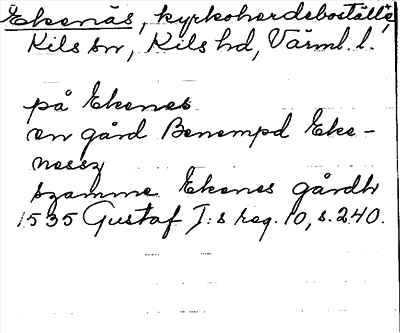 Ekenäs, kyrkoherdeboställe,
Kils sn, Kils hd, Värml. l.
på Ekenes
en gård Benempd Eke-
nessz
szamme Ekenes gårdh
1535 Gustaf I:s reg. 10, s. 240.